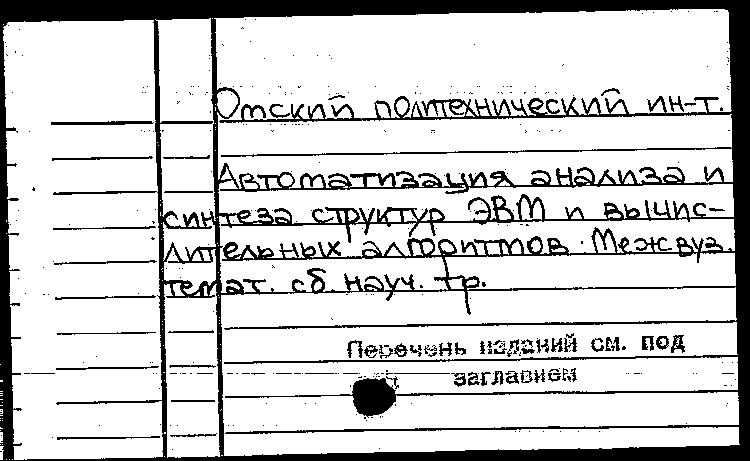 Омский политехнический ин-т.
Автоматизация анализа и
синтеза структур ЭВМ и вычис-
лительных алгоритмов. Межвуз.
темат. сб. науч. тр.
Перечень изданий см. под
заглавием